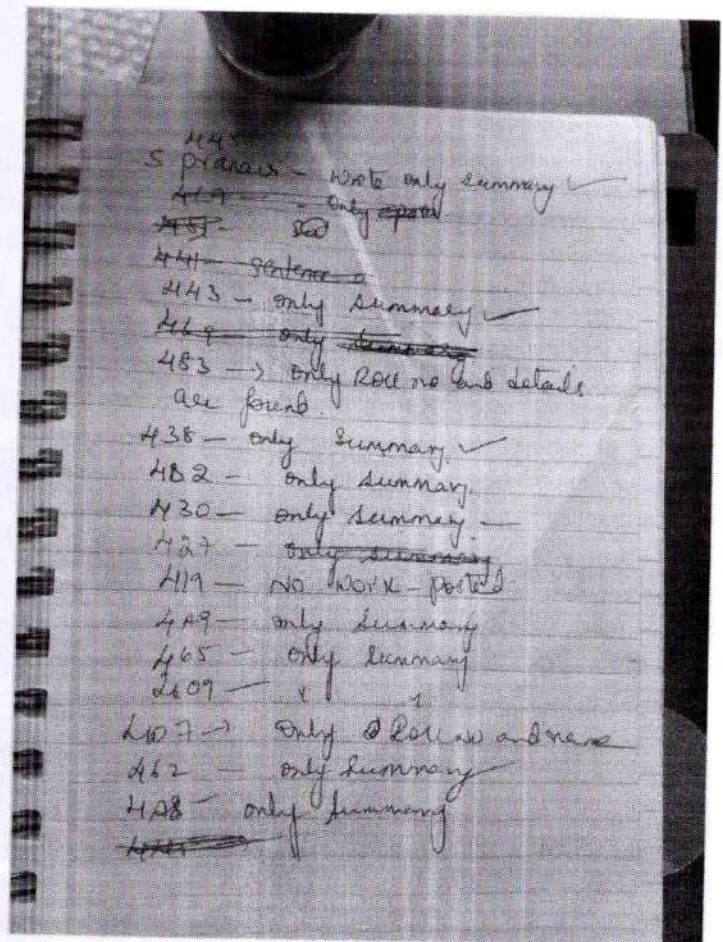 445
S pranav - Wrote only summary ✓
469 - only
451 -
441 - sentence
443 - only summary ✓
469 only summary
483 → only Roll no and details
are found.
438 - only Summary ✓
4B2 - only summary.
430 - only summary -
427 - only summary
419 - No work - posted
4A9 - only summary
465 - only summary
only Roll no and name
462 - only summary
4A8 - only summary